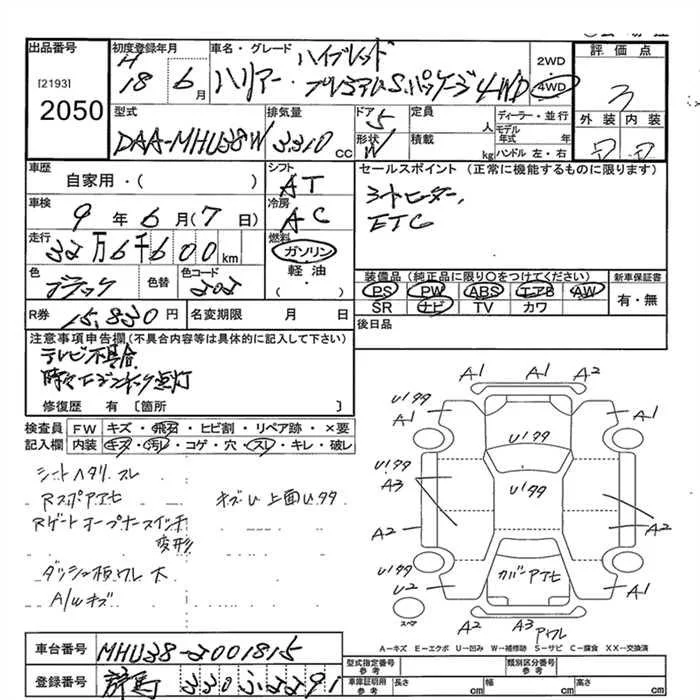 出品番号
[2193]
2050
初度登録年月
H
18 6 月
車名・グレード
ハイブレッド
ハリアー・プレミアムS.パッケージ4WD
2WD
4WD
評価点
3
外装 内装
型式
DAA-MHU38W
排気量
3310 cc
ドア 5
形状 W
定員 人
積載 kg
ディーラー・並行
モデル年式 年
ハンドル 左・右
車歴
自家用・( )
シフト
AT
セールスポイント(正常に機能するものに限ります)
シートヒーター,
ETC
車検
9年6月(7日)
冷房
AC
走行
32万6千600km
燃料
ガソリン
軽油
・( )
色
ブラック
色替
色コード
202
装備品(純正品に限り○をつけてください)
PS PW ABS エアB AW
SR ナビ TV カワ
新車保証書
有・無
R券 15,830円
名変期限 月 日
後日品
注意事項申告欄(不具合内容等は具体的に記入して下さい)
テレビ不具合
時々エンジンチェック点灯
修復歴 有 [箇所 ]
検査員 FW キズ・飛石・ヒビ割・リペア跡・×要
記入欄 内装 キズ・汚れ・コゲ・穴・スレ・キレ・破レ
シートヘタリ.スレ
Rスポアエセ キズU 上面Uタタ
Rゲートオープナースイッチ
変形
ダッシュ板ワレ大
A/Wキズ
A1 A1 A2
Uタタ
A1
A1
Uタタ
Uタタ
A3
Uタタ
A2
A2
Uタタ
U2
カバーアセ
A1
スペア
A2 A3 アワレ
A-キズ E-エクボ U-凹み W-補修跡 S-サビ C-腐食 XX-交換済
車台番号 MHU38-2001815
登録番号 群馬 330 ふ 3291
型式指定番号
参考
類別区分番号
参考
車庫証明用
参考
長さ cm
幅 cm
高さ cm